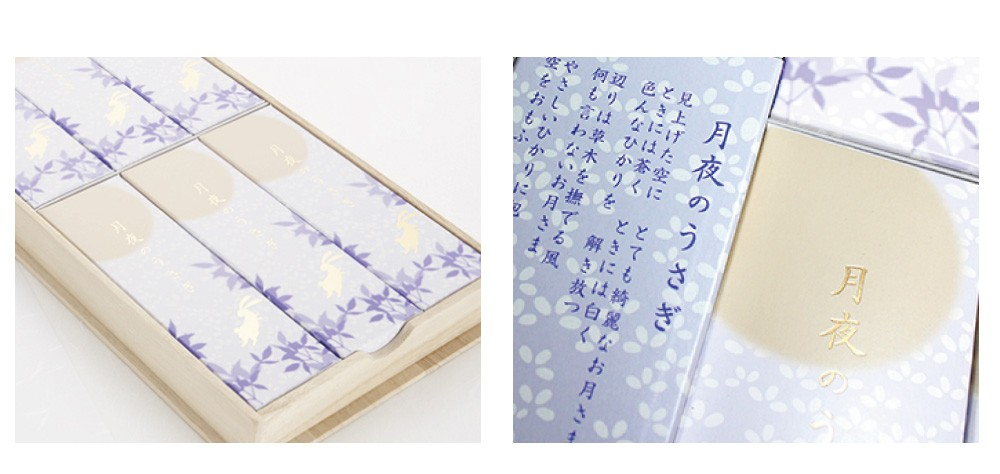 月夜のうさぎ
月夜のうさぎ
月夜
月夜のう
月夜のうさぎ
見上げた空に とても綺麗なお月さま
ときには蒼く ときには白く
色んなひかりを 解き放つ
辺りは草木を撫でる風
何も言わないお月さま
やさしいひかりに包
空をおもふ